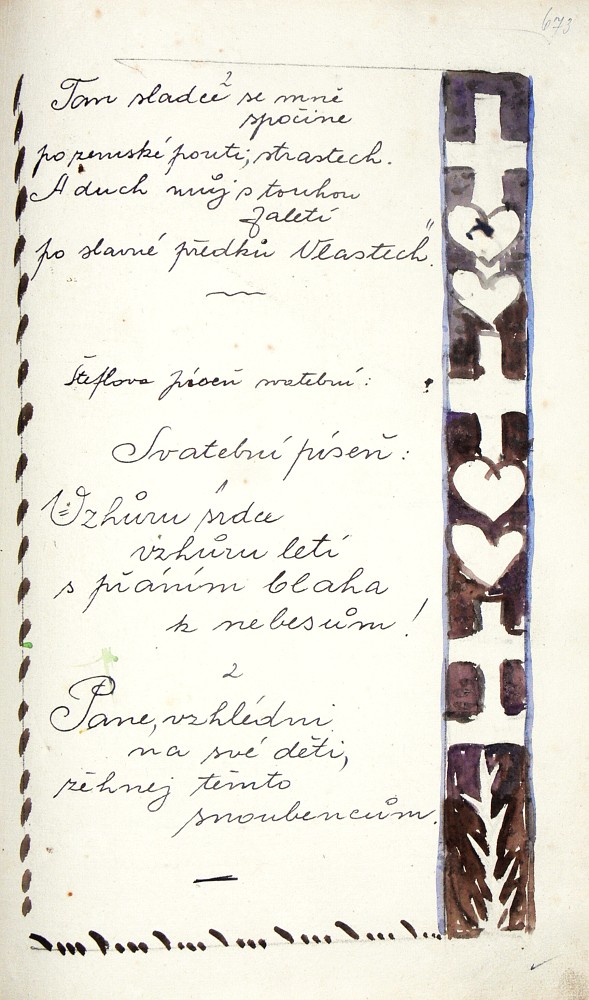 673
Tam sladce se mně
spočine
po zemské pouti, strastech.
A duch můj s touhou
zaletí
po slavné předků Vlastech".
Šteflova píseň svatební:
Svatební píseň:
1
Vzhůru srdce
vzhůru letí
s přáním blaha
k nebesům!
2
Pane, vzhlédni
na své děti,
žehnej těmto
snoubencům.